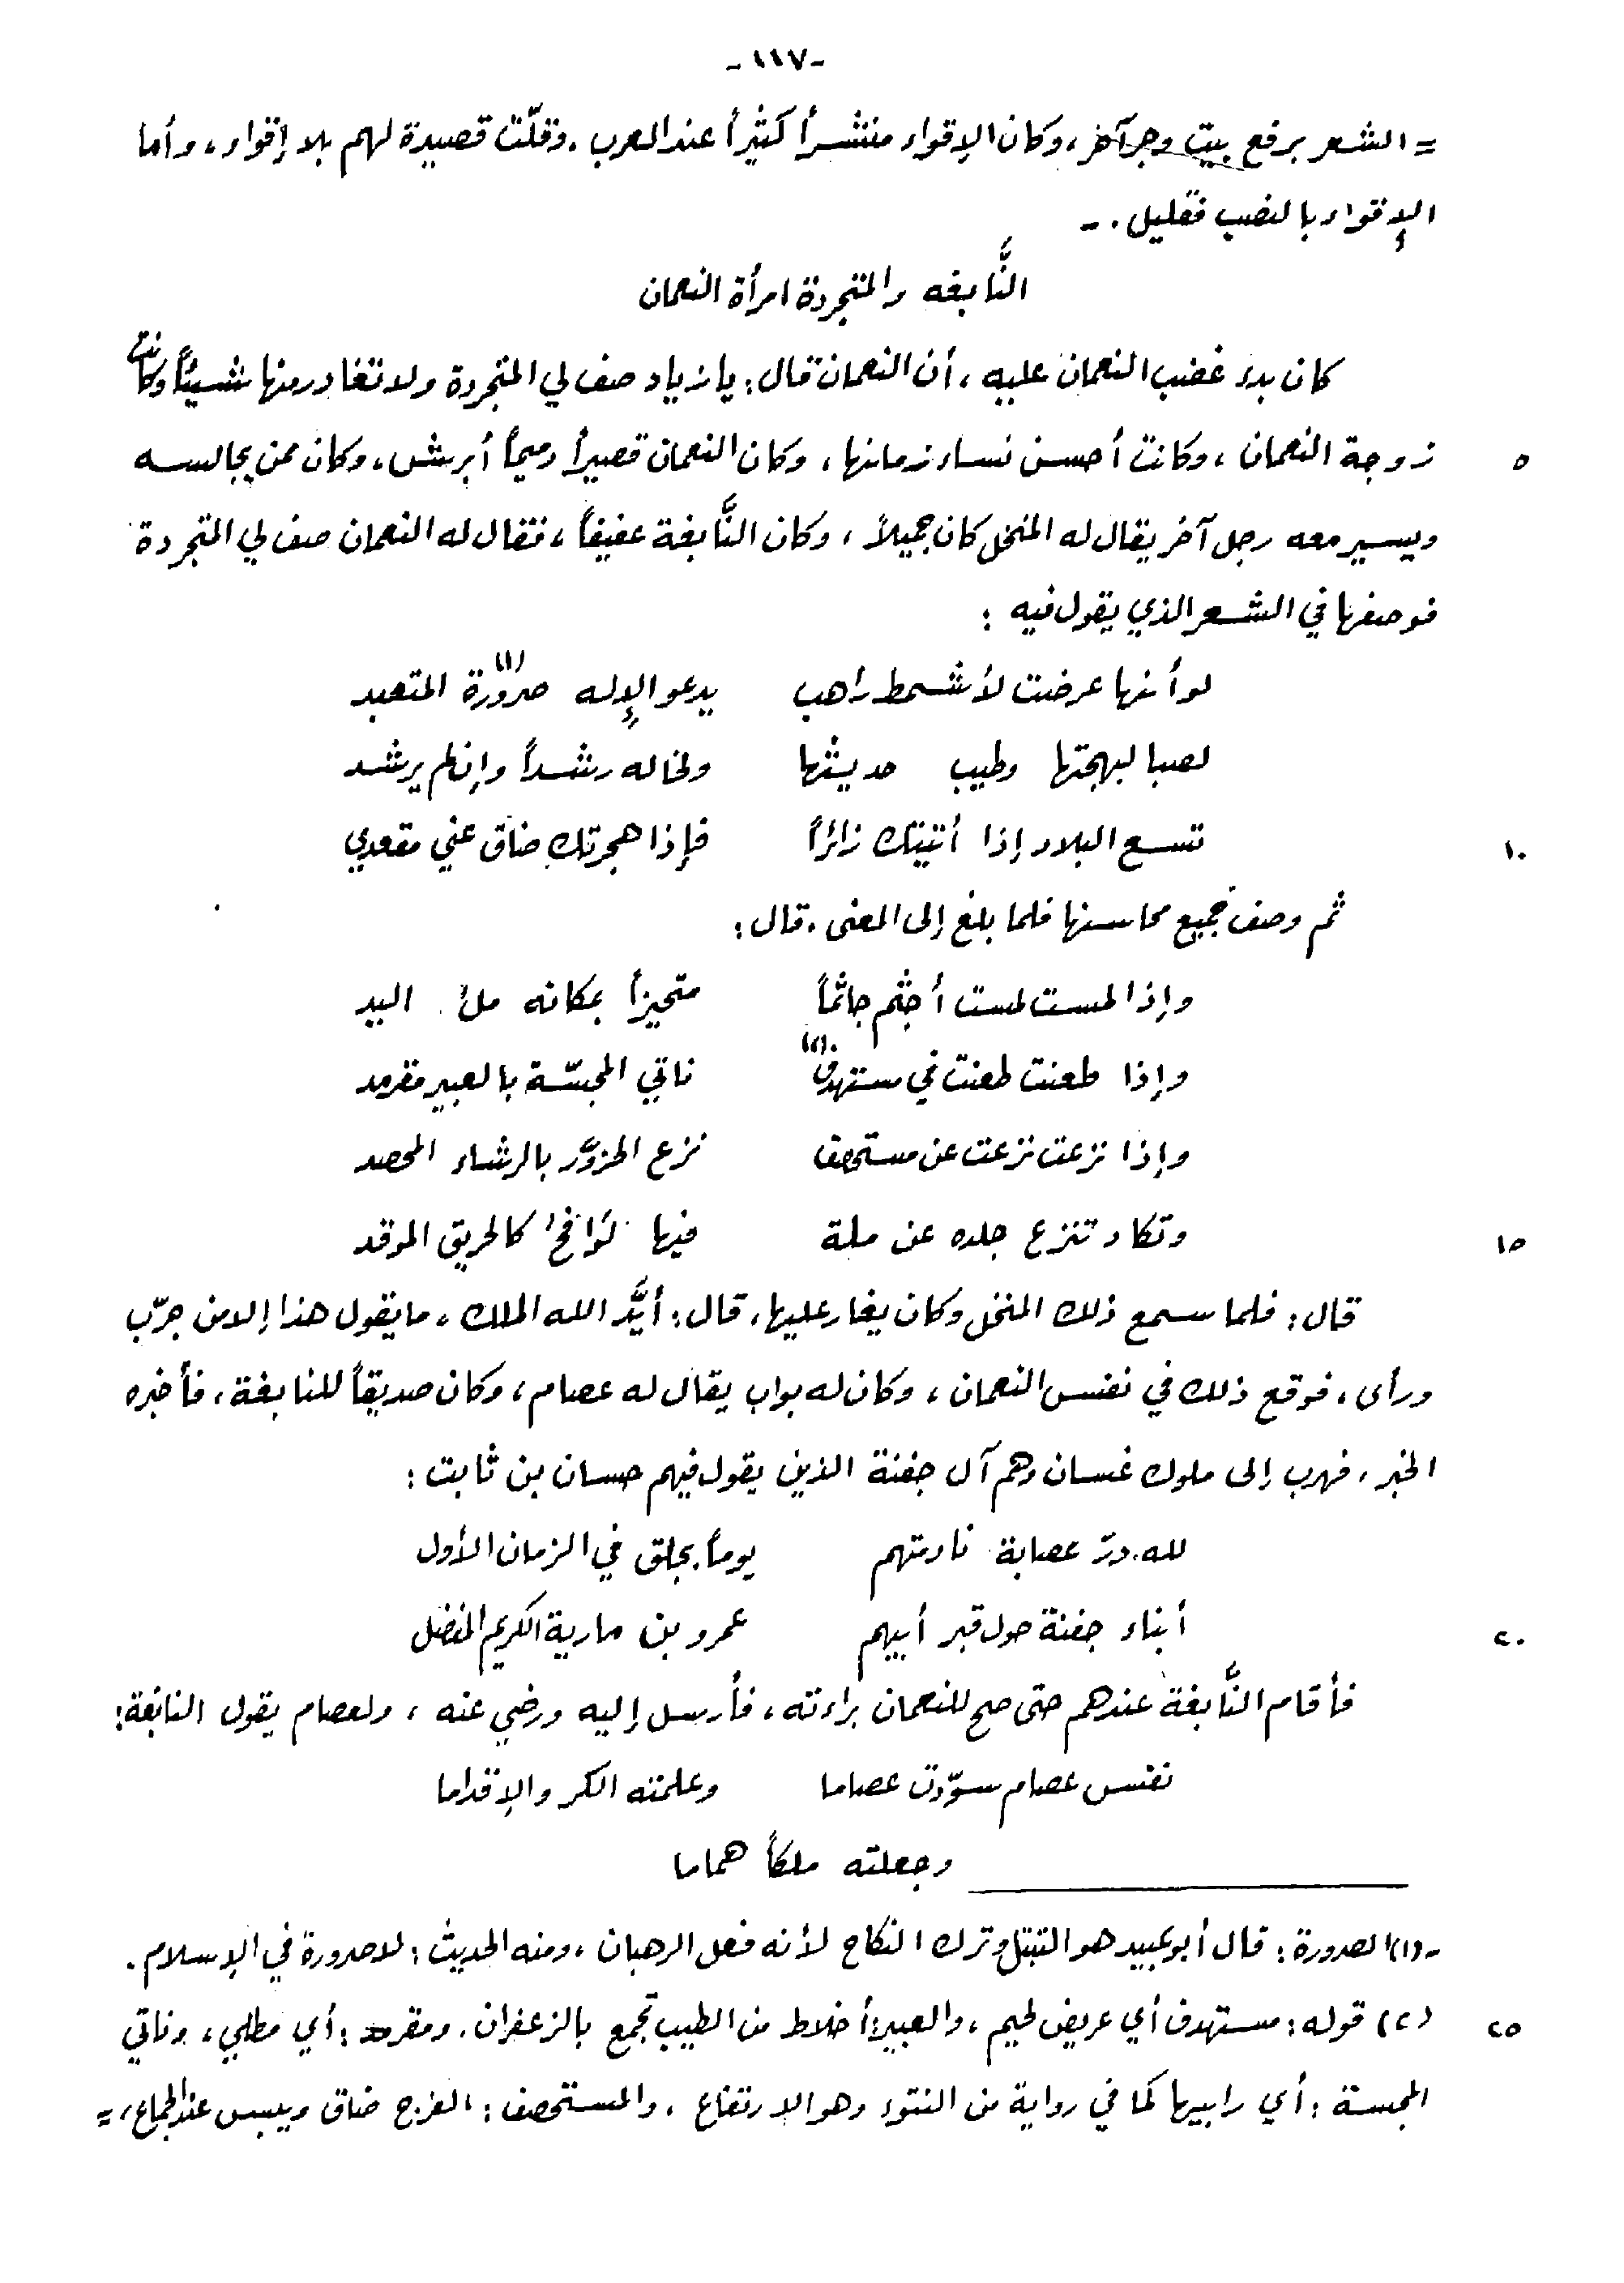 -١١٧-
= الشعر برفع بيت وجر آخر، وكان الإقواء منتشراً كثيراً عند العرب، وقلّت قصيدة لهم بلا إقواء، وأما
الإقواء بالنصب فقليل. -
النَّابغه والمتجردة امرأة النعمان
كان بدء غضب النعمان عليه، أن النعمان قال: يا زياد صف لي المتجردة ولا تغادر منها شيئاً وكانت
٥ زوجة النعمان، وكانت أحسن نساء زمانها، وكان النعمان قصيراً دميماً أبرش، وكان ممن يجالسه
ويسير معه رجل آخر يقال له المنخل كان جميلاً، وكان النَّابغة عفيفاً، فقال له النعمان صف لي المتجردة
فوصفها في الشعر الذي يقول فيه:
لو أنها عرضت لأشمط راهب يدعو الإله صرورة (١) المتعبد
لصبا لبهجتها وطيب حديثها ولخاله رشداً وإن لم يرشد
١٠ تسع البلاد إذا أتيتك زائراً فإذا هجرتك ضاق عني مقعدي
ثم وصف جميع محاسنها فلما بلغ إلى المعنى، قال:
وإذا لمست لمست أجثم جاثماً متحيزاً بمكانه ملءُ اليد
وإذا طعنت طعنت في مستهدف (٢) ناتي المجسّة بالعبير مقرمد
وإذا نزعت نزعت عن مستحصف نزع الحزوَّر بالرشاء المحصد
١٥ وتكاد تنزع جلده عن ملة فيها لَوَافحُ كالحريق الموقد
قال: فلما سمع ذلك المنخل وكان يغار عليها، قال: أيَّد الله الملك، ما يقول هذا إلا من جرّب
ورأى، فوقع ذلك في نفس النعمان، وكان له بواب يقال له عصام، وكان صديقاً للنابغة، فأخبره
الخبر، فهرب إلى ملوك غسان وهم آل جفنة الذين يقول فيهم حسان بن ثابت:
لله درّ عصابة نادمتهم يوماً بجلق في الزمان الأول
٢٠ أبناء جفنة حول قبر أبيهم عمرو بن مارية الكريم المفضل
فأقام النَّابغة عندهم حتى صح للنعمان براءته، فأرسل إليه ورضي عنه، ولعصام يقول النابغة:
نفس عصام سوّدت عصاما وعلمته الكر والإقداما
وجعلته ملكاً هماما
-(١) الصرورة: قال أبو عبيد هو التبتل وترك النكاح لأنه فعل الرهبان، ومنه الحديث: لا صرورة في الإسلام.
٢٥ (٢) قوله: مستهدف أي عريض لحيم، والعبير: أخلاط من الطيب تجمع بالزعفران. ومقرمد: أي مطلي، وناتي
المجسة: أي رابيها كما في رواية من النتوء وهو الارتفاع، والمستحصف: الفرج ضاق ويبس عند الجماع، =